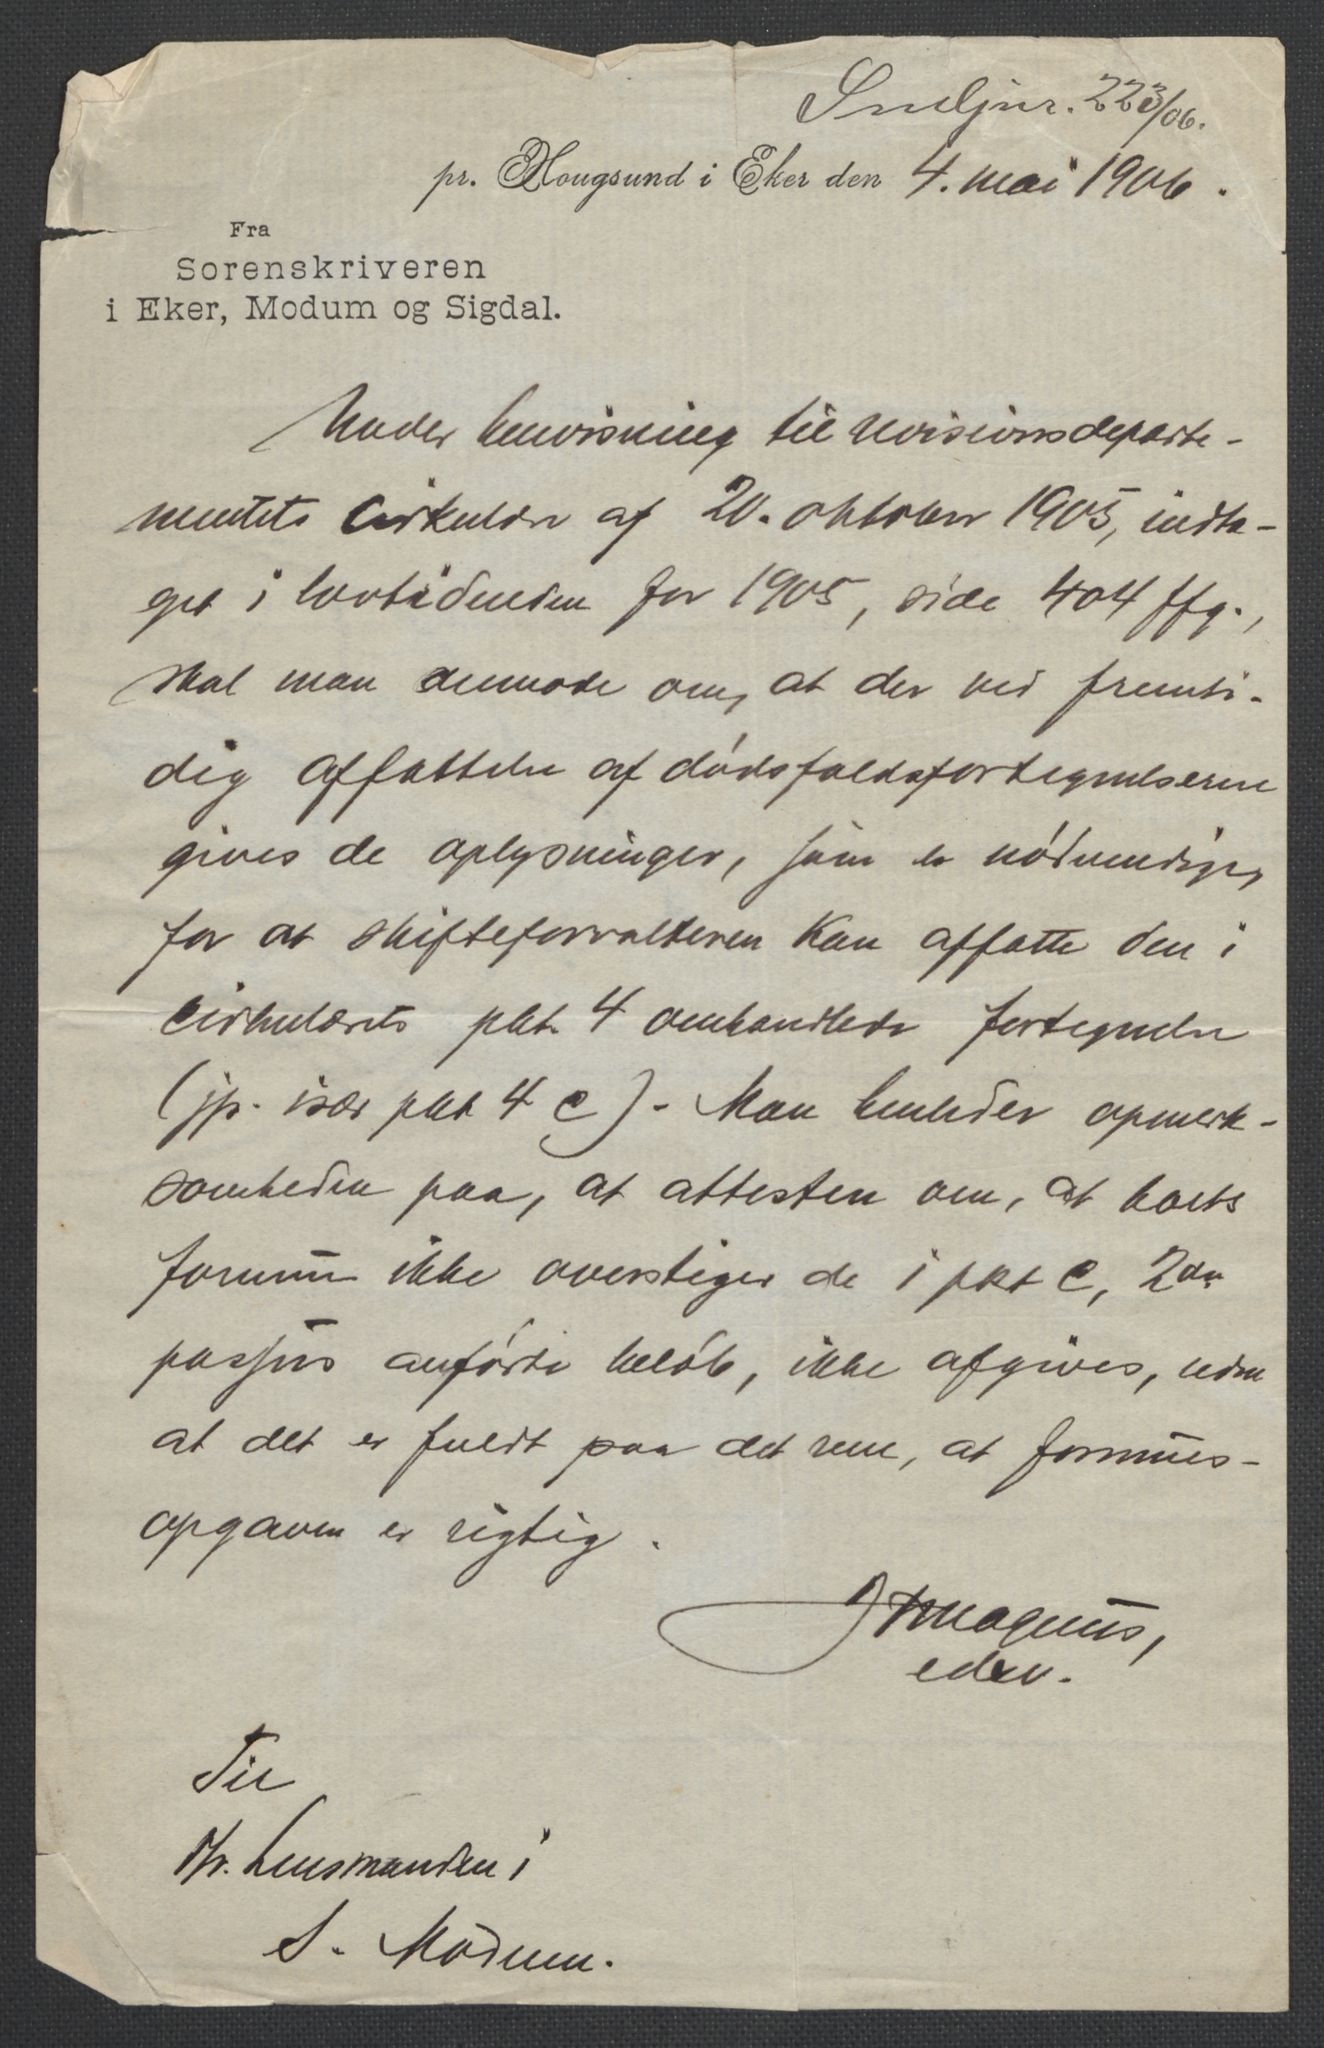 223/06.
pr. Hougsund i Eker den 4. mai 1906.
Fra
Sorenskriveren
i Eker, Modum og Sigdal.
Under henvisning til revisionsdeparte-
mentets cirkulære af 20. oktober 1905, indta-
get i lovtidenden for 1905, side 404 ffg.,
skal man anmode om, at der ved fremti-
dig affattelse af dødsfaldsfortegnelserne
gives de oplysninger, som er nødvendige,
for at skifteforvalteren kan affatte den i
cirkulærets pkt. 4 omhandlede fortegnelse
(jfr. især pkt 4 c). Man henleder opmerk-
somheden paa, at attesten om, at boets
formue ikke overstiger de i pkt c, 2den
passus anførte beløb, ikke afgives, uden
at det er fuldt paa det rene, at formues-
opgaven er rigtig.
Magnus,
edsv.
Til
Hr. Lensmanden i
S. Modum.